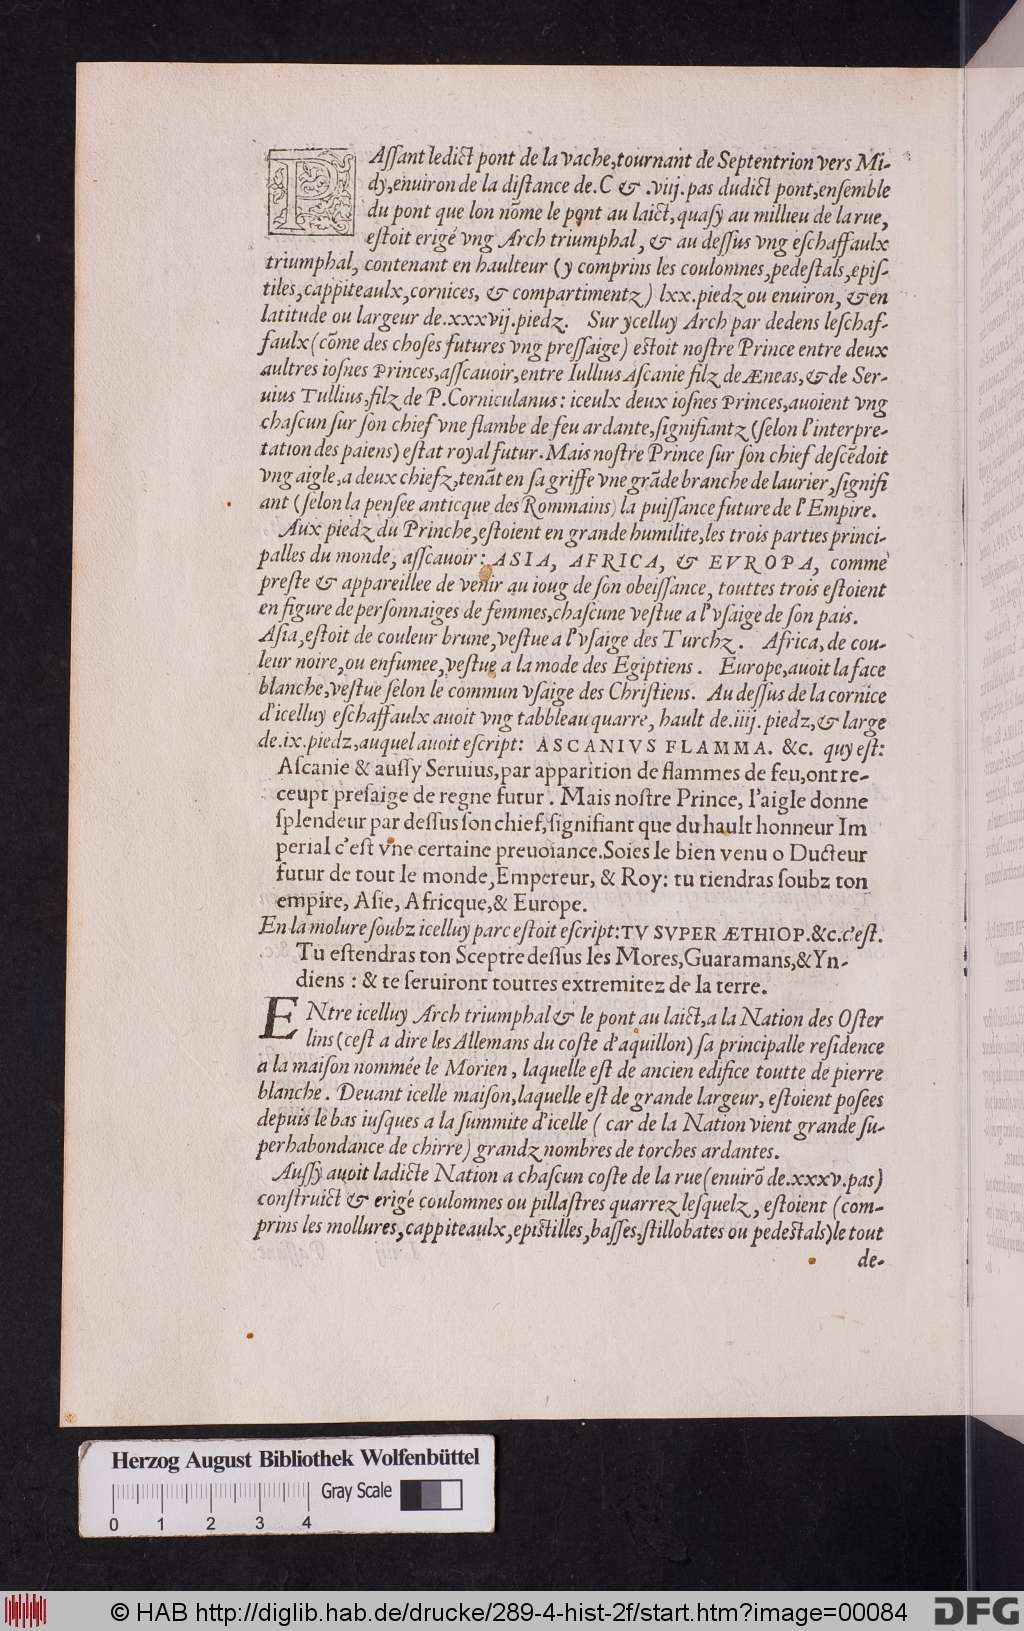 PAſſant ledict pont de la vache,tournant de Septentrion vers Mi-
dy,enuiron de la diſtance de.C & .viij.pas dudict pont,enſemble
du pont que lon nõme le pont au laict,quaſy au millieu de la rue,
eſtoit erigé vng Arch triumphal, & au deſſus vng eſchaffaulx
triumphal, contenant en haulteur (y comprins les coulomnes,pedeſtals,epiſ-
tiles,cappiteaulx,cornices, & compartimentz) lxx.piedz ou enuiron, & en
latitude ou largeur de.xxxvij.piedz. Sur ycelluy Arch par dedens leſchaf-
faulx(cõme des choſes futures vng preſſaige) eſtoit noſtre Prince entre deux
aultres ioſnes Princes,aſſcauoir,entre Iullius Aſcanie filz de Æneas,& de Ser-
uius Tullius,filz de P.Corniculanus: iceulx deux ioſnes Princes,auoient vng
chaſcun ſur ſon chief vne flambe de feu ardante,ſignifiantz (ſelon l'interpre-
tation des paiens) eſtat royal futur. Mais noſtre Prince ſur ſon chief deſcẽdoit
vng aigle,a deux chiefz,tenãt en ſa griffe vne grãde branche de laurier,ſignifi
ant (ſelon la penſée anticque des Rommains) la puiſſance future de l'Empire.
Aux piedz du Prinche,eſtoient en grande humilite,les trois parties princi-
palles du monde, aſſcauoir: ASIA, AFRICA, & EVROPA, comme
preſte & appareillee de venir au ioug de ſon obeiſſance, touttes trois eſtoient
en figure de perſonnaiges de femmes,chaſcune veſtue a l'vſaige de ſon pais.
Aſia,eſtoit de couleur brune,veſtue a l'vſaige des Turchz. Africa, de cou-
leur noire,ou enfumee,veſtue a la mode des Egiptiens. Europe,auoit la face
blanche,veſtue ſelon le commun vſaige des Chriſtiens. Au deſſus de la cornice
d'icelluy eſchaffaulx auoit vng tabbleau quarre, hault de.iiij.piedz,& large
de.ix.piedz,auquel auoit eſcript: ASCANIVS FLAMMA. &c. quy eſt:
Aſcanie & auſſy Seruius,par apparition de flammes de feu,ont re-
ceupt preſaige de regne futur. Mais noſtre Prince, l'aigle donne
ſplendeur par deſſus ſon chief,ſignifiant que du hault honneur Im
perial c'eſt vne certaine preuoiance.Soies le bien venu o Ducteur
futur de tout le monde,Empereur, & Roy: tu tiendras ſoubz ton
empire, Aſie, Africque,& Europe.
En la molure ſoubz icelluy parc eſtoit eſcript:TV SVPER ÆTHIOP.&c.c'eſt.
Tu eſtendras ton Sceptre deſſus les Mores,Guaramans,&Yn-
diens : & te ſeruiront touttes extremitez de la terre.
ENtre icelluy Arch triumphal & le pont au laict,a la Nation des Oſter
lins (ceſt a dire les Allemans du coſte d'aquillon) ſa principalle reſidence
a la maiſon nommée le Morien, laquelle eſt de ancien edifice toutte de pierre
blanche. Deuant icelle maiſon,laquelle eſt de grande largeur, eſtoient poſees
depuis le bas iuſques a la ſummite d'icelle (car de la Nation vient grande ſu-
perhabondance de chirre) grandz nombres de torches ardantes.
Auſſy auoit ladicte Nation a chaſcun coſte de la rue(enuirõ de.xxxv.pas)
conſtruict & erigé coulomnes ou pillaſtres quarrez leſquelz, eſtoient (com-
prins les mollures,cappiteaulx,epiſtilles,baſſes,ſtillobates ou pedeſtals)le tout
de-
Herzog August Bibliothek Wolfenbüttel
Gray Scale
0 1 2 3 4
© HAB http://diglib.hab.de/drucke/289-4-hist-2f/start.htm?image=00084
DFG